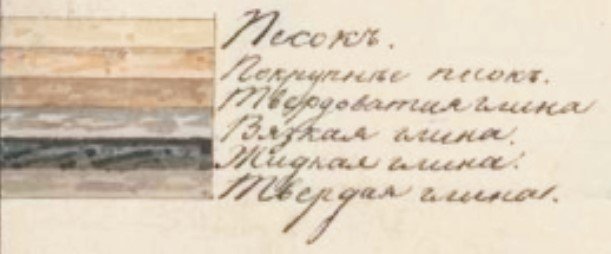 Песокъ.
Покрупнѣе песокъ.
Твердоватая глина
Вязкая глина.
Жидкая глина.
Твердая глина.